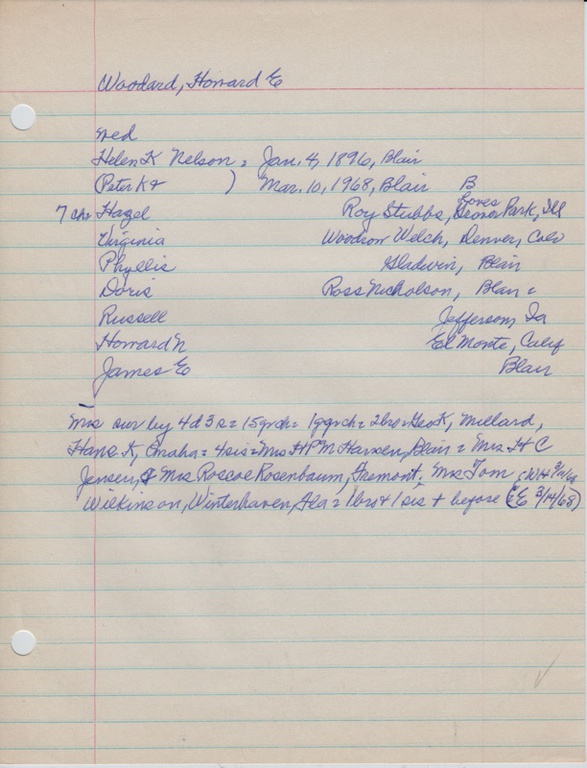 Woodard, Howard E
wed
Helen K Nelson = Jan. 4, 1896, Blair
(Peter K & ) Mar. 10, 1968, Blair B
Loves
7 ch = Hazel Roy Stubbs, Grover Park, Ill
Virginia Woodrow Welch, Denver, Colo
Phyllis Gladwin, Blair
Doris Ross Nicholson, Blair =
Russell Jefferson, Ia
Howard N El Monte, Calif
James E Blair
Mrs sur by 4d 3s = 15 grch = 1 ggrch = 2 bro = Geo K, Millard,
Hans K, Omaha = 4 sis = Mrs H P M Hansen, Blair = Mrs H C
Jensen, & Mrs Roscoe Rosenbaum, Fremont, Mrs Tom
Wilkinson, Winterhaven, Fla = 1 bro & 1 sis + before (E 3/14/68)